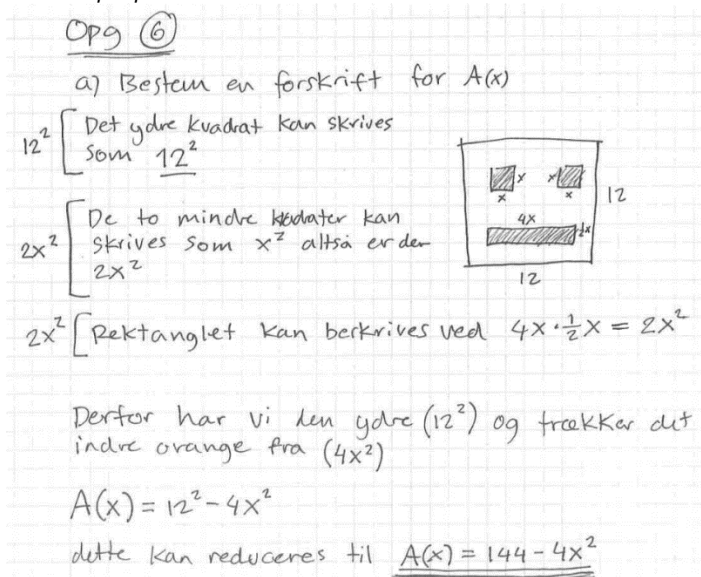 Opg 6
a) Bestem en forskrift for A(x)
12² [ Det ydre kvadrat kan skrives
som 12²
2x² [ De to mindre kvadater kan
skrives som x² altså er der
2x²
x x
x x
4x
½x
12
12
2x² [ Rektanglet kan berkrives ved 4x·½x = 2x²
Derfor har vi den ydre (12²) og trækker det
indre orange fra (4x²)
A(x) = 12² - 4x²
dette kan reduceres til A(x) = 144 - 4x²